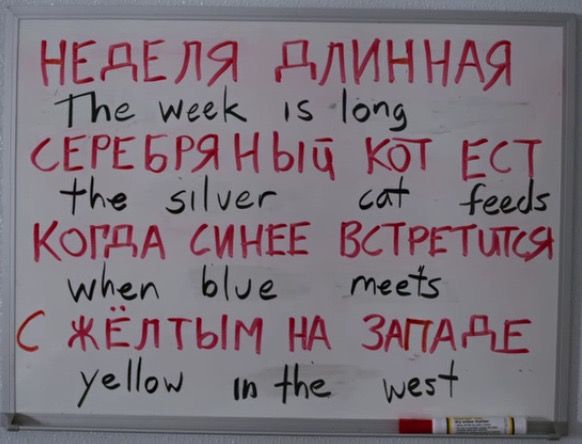 НЕДЕЛЯ ДЛИННАЯ
The week is long
СЕРЕБРЯНЫЙ КОТ ЕСТ
the silver cat feeds
КОГДА СИНЕЕ ВСТРЕТИТСЯ
when blue meets
С ЖЁЛТЫМ НА ЗАПАДЕ
yellow in the west